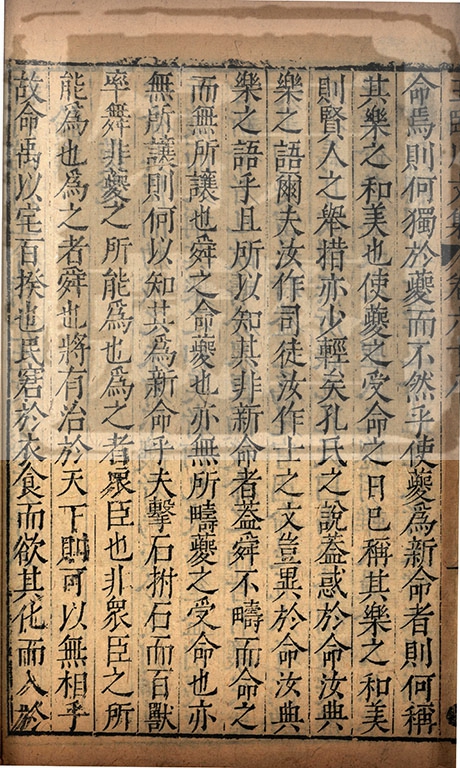 命焉則何獨於夔而不然乎使夔為新命者則何稱
其樂之和美也使夔之受命之日已稱其樂之和美
則賢人之舉措亦少輕矣孔氏之說蓋惑於命汝典
樂之語爾夫汝作司徒汝作士之文豈異於命汝典
樂之語乎且所以知其非新命者蓋舜不疇而命之
而無所讓也舜之命夔也亦無所疇夔之受命也亦
無所讓則何以知其為新命乎夫擊石拊石而百獸
率舞非夔之所能為也為之者眾臣也非眾臣之所
能為也為之者舜也將有治於天下則可以無相乎
故命禹以宅百揆也民窘於衣食而欲其化而入於